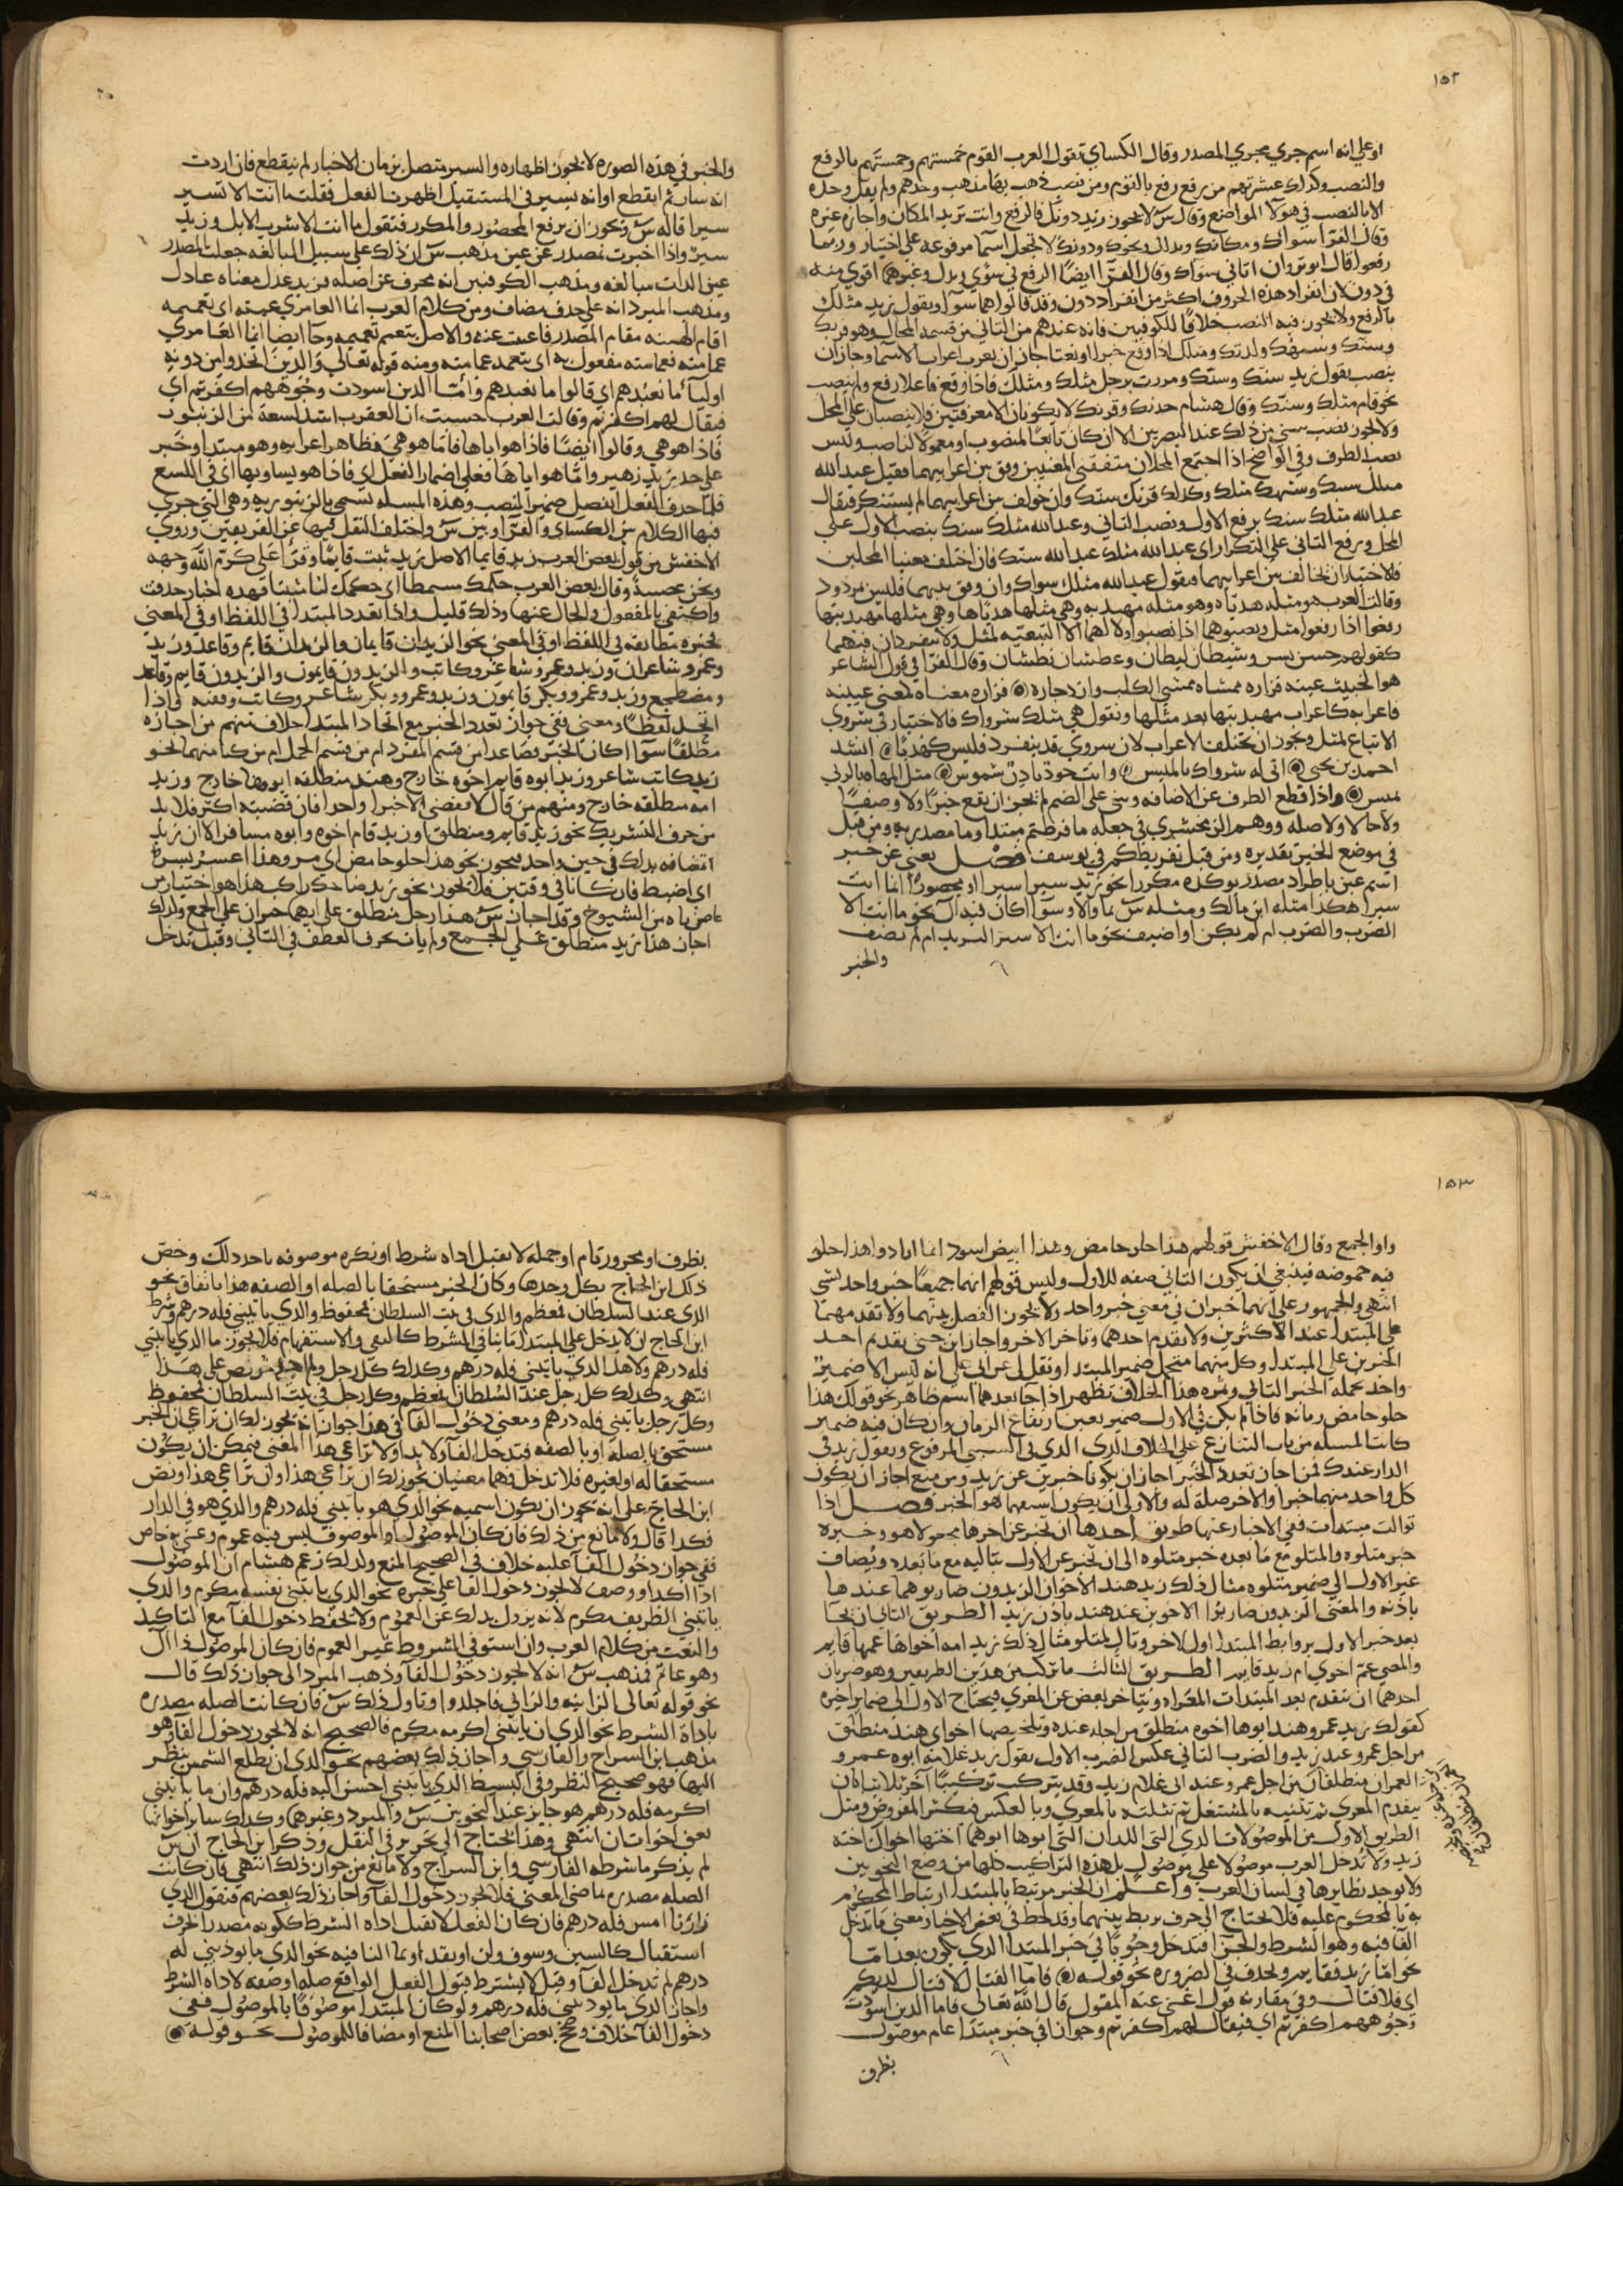 ١٥٢
او علي انه اسم جري مجري المصدر وقال الكساي تقول العرب القوم خمستهم وخمستهم بالرفع
والنصب وكذلك عشرتهم من رفع رفع بالقوم ومن نصب ذهب بها مذهب وحدهم ولم يقل وحده
الا بالنصب في هولا المواضع وقال س لا يجوز زيد دونك فالرفع وانت تريد المكان واجازه غيره
وقال الفرا سواك ومكانك وبدلك ونحوك ودونك لا تجعل اسما مرفوعه علي اختيار وربما
رفعوا قال ابو ثروان اتاني سواك وقال الفرا ايضا الرفع في سوي وبدل وغيرهما اقوي منه
في دون لان انفراد هذه الحروف اكثر من انفراد دون وقد قالوا هما سوا ويقول زيد مثلك
بالرفع ولا يجوز فيه النصب خلافا للكوفيين فانه عندهم من الثاني من قسمه المحال وهو قربك
وسنك وشبهك ولدتك ومثلك اذا وقع خبرا او نعتا جاز ان يعرب اعراب الاسما وجاز ان
ينصب يقول زيد سنك وسنك ومررت برجل مثلك ومثلك فاذا وقع فاعلا رفع ولم ينصب
نحو قام مثلك وسنك وقال هشام حدنك وقرنك لا يكونان الا معرفتين فلا ينصبان علي المحل
ولا يجوز نصب شي من ذلك عند البصريين الا ان كان تابعا لمنصوب او معمولا لناصب وليس
نصب الظرف وفي الواضح اذا اجتمع المحلان متفقي المعنيين وفق بين اعرابيهما فقيل عبد الله
مثلك سنك وشبهك مثلك وكذلك قرنك سنك وان خولف بين اعرابيهما لم يستنكر فيقال
عبد الله مثلك سنك برفع الاول ونصب الثاني وعبد الله مثلك سنك بنصب الاول علي
المحل وبرفع الثاني علي التكرار اي عبد الله مثلك عبد الله سنك فان اختلف معنيا المحلين
فالاختيار ان تخالف بين اعرابيهما فيقول عبد الله مثلك سواك وان وفق بينهما فليس بمردود
وقالت العرب هو مثله هدياه وهو مثله مهديه وهي مثلها هدياها وهي مثلها مهديتها
رفعوا اذا رفعوا مثل ونصبوهما اذا نصبوا ولا لهما الا التبعيه لمثل ولا تنفردان فهما
كقولهم حسن بسن وشيطان ليطان وعطشان نطشان وقال الفرا في قول الشاعر
هو الخبيث عينه فراره ممشاه ممشي الكلب وازدجاره فراره معناه لمعني عينه
فاعرابه كاعراب مهديتها بعد مثلها ونقول هي مثلك شرواك فالاختيار في شروي
الاتباع لمثل ويجوز ان تختلف الاعراب لان شروي قد ينفرد فليس كهديا انشد
احمد بن يحيي اني له شرواك يا لميس وانت خود بادن شموس مثل المهاه بالربي
تميس واذا قطع الظرف عن الاضافه وبني علي الضم لم يجز ان يقع خبرا ولا وصفا
ولا حالا ولا صله ووهم الزمخشري في جعله ما فرطتم مبتدا وما مصدريه ومن قبل
في موضع الخبر تقديره ومن قبل تفريطكم في يوسف فصل يغني عن خبر
اسم عين باطراد مصدر يوكده مكررا نحو زيد سيرا سيرا او محصورا انما انت
سيرا هكذا مثله ابن مالك ومثله س بما والا وسوا اكان فيه ال نحو ما انت الا
الضرب والضرب ام لم يكن او اضيف نحو ما انت الا سير البريد ام لم يضف
والخبر
والخبر في هذه الصوره لا يجوز اظهاره والسير متصل بزمان الاخبار لم ينقطع فان اردت
انه سار ثم انقطع او انه يسير في المستقبل اظهرت الفعل فقلت ما انت الا تسير
سيرا قاله س ويجوز ان يرفع المحصور والمكرر فتقول ما انت الا شرب الابل وزيد
سير واذا اخبرت بمصدر عن عين مذهب س ان ذلك علي سبيل المبالغه جعلت المصدر
عين الذات مبالغه ومذهب الكوفيين انه محرف عن اصله فزيد عدل معناه عادل
ومذهب المبرد انه علي حذف مضاف ومن كلام العرب انما العامري عمته اي تعممه
اقام الهيئه مقام المصدر فاغنت عنه والاصل يتعمم تعممه وجا ايضا انما العامري
عمامته فعمامته مفعول به اي يتعهد عمامته ومنه قوله تعالي والذين اتخذوا من دونه
اوليا ما نعبدهم اي قالوا ما نعبدهم واما الذين اسودت وجوههم اكفرتم اي
فيقال لهم اكفرتم وقالت العرب حسبت ان العقرب اشد لسعة من الزنبور
فاذا هو هي وقالوا ايضا فاذا هو اياها فاما هو هي فظاهر اعرابه وهو مبتدا وخبر
علي حد زيد زهير واما هو اياها فعلي اضمار الفعل اي فاذا هو يساويها اي في اللسع
فلما حذف الفعل انفصل ضمير النصب وهذه المسله تسمي بالزنبوريه وهي التي جري
فيها الكلام بين الكساي والفرا وبين س واختلف النقل فيها عن الفريقين وروي
الاخفش من قول بعض العرب زيد قايما الاصل زيد ثبت قايما وقرا علي كرم الله وجهه
ونحن عصبة وقال بعض العرب حكمك مسمطا اي حكمك لنا مثبتا فهذه اخبار حذفت
واكتفي بالمفعول والحال عنها وذلك قليل واذا تعدد المبتدا في اللفظ او في المعني
فخبره مطابقه في اللفظ او في المعني نحو الزيدان قايمان والزيدان قايم وقاعد وزيد
وعمرو شاعران وزيد وعمرو شاعر وكاتب والزيدون قايمون والزيدون قايم وقاعد
ومضطجع وزيد وعمرو وبكر قايمون وزيد وعمرو وبكر شاعر وكاتب وفقيه واذا
اتحد لفظا ومعني ففي جواز تعدد الخبر مع اتحاد المبتدا خلاف فمنهم من اجازه
مطلقا سوا اكان الخبر فصاعدا من قسم المفرد ام من قسم الجمل ام من كل منهما نحو
زيد كاتب شاعر وزيد ابوه قايم اخوه خارج وهند منطلقه ابوها خارج وزيد
امه منطلقه خارج ومنهم من قال لا يقتضي الا خبرا واحدا فان قضيته اكثر فلا بد
من حرف التشريك نحو زيد قايم ومنطلق او زيد قام اخوه وابوه مسافر الا ان تريد
اتصافه بذلك في حين واحد فيجوز نحو هذا حلو حامض اي مر وهذا اعسر يسر
اي اضبط فان كانا في وقتين فلا يجوز نحو زيد ضاحك راكب هذا هو اختيار من
عاصرناه من الشيوخ وقد اجاز س هذا رجل منطلق علي ايهما خبران علي الجمع ولذلك
اجاز هذا زيد منطلق علي الجمع ولم يات بحرف العطف في الثاني وقيل تدخل
١٥٣
واو الجمع وقال الاخفش قولهم هذا حلو حامض وهذا ابيض اسود انما ارادوا هذا حلو
فيه حموضه فينبغي ان يكون الثاني صفه للاول وليس قولهم انهما جميعا خبر واحد لشي
انتهي والجمهور علي انهما خبران في معني خبر واحد ولا يجوز الفصل بينهما ولا تقدمهما
علي المبتدا عند الاكثرين ولا تقديم احدهما وتاخر الاخر واجاز ابن جني تقديم احد
الخبرين علي المبتدا وكل منهما متحمل ضمير المبتدا ونقل لي عن ابي علي انه ليس الا ضمير
واحد تحمله الخبر الثاني وثمره هذا الخلاف تظهر اذا جا بعدهما اسم ظاهر نحو قولك هذا
حلو حامض رمانه فاذا لم يكن في الاول ضمير تعين ارتفاع الرمان وان كان فيه ضمير
كانت المسله من باب التنازع علي الخلاف الذي في السببي المرفوع وتقول زيد في
الدار عندك فمن اجاز تعدد الخبر اجاز ان يكونا خبرين عن زيد ومن منع اجاز ان يكون
كل واحد منهما خبرا والاخر صله له والاولي ان يكون اسبقهما هو الخبر فصل اذا
توالت مبتدات ففي الاخبار عنها طريق احدها ان تخبر عن اخرها بمجرولا هو وخبره
خبر متلوه والمتلو مع ما بعده خبر متلوه الي ان تخبر عن الاول بتاليه مع ما بعده ويضاف
غير الاول الي ضمير متلوه مثال ذلك زيد هند الاخوان الزيدون ضاربوهما عندها
باذنه والمعني الزيدون ضاربوا الاخوين عند هند باذن زيد الطريق الثاني ان تجي
بعد خبر الاول بروابط المبتدا اول لاخر وتال لمتلو مثال ذلك زيد امه اخواها عمهما قايم
والمعني عم اخوي ام زيد قايم الطريق الثالث ما تركب من هذين الطريقين وهو ضربان
احدهما ان تتقدم بعد المبتدات المعراه ويتاخر بعض عن المعري فيحتاج الاول الي ضماير اخره
كقولك زيد عمرو هند ابوها اخوه منطلق من اجله عنده وتلخيصها اخو اي هند منطلق
من اجل عمرو عند زيد والضرب الثاني عكس الضرب الاول نقول زيد غلامه ابوه عمرو
العمران منطلقان من اجل عمرو عند ابي غلام زيد وقد يتركب تركيبا اخر ثلاثيا بان
يتقدم المعري ثم تثنيه بالمشتغل ثم تثلثه بالمعري وبالعكس فيكثر المفروض ومثل
الطريق الاول من الموصولات الذي التي اللذان التي ابوها ابوهما اختها اخواك اخته
زيد ولا تدخل العرب موصولا علي موصول بل هذه التراكيب كلها من وضع النحويين
ولا يوجد نظايرها في لسان العرب واعلم ان الخبر مرتبط بالمبتدا ارتباط المحكوم
به بالمحكوم عليه فلا يحتاج الي حرف يربط بينهما وقد لحظ في بعض الاخبار معني ما تدخل
الفا فيه وهو الشرط والجزا فتدخل وجوبا في خبر المبتدا الذي يكون بعد اما
نحو اما زيد فقايم وتحذف في الضروره نحو قوله فاما القتال لا قتال لديكم
اي فلا قتال وفي مقارنه قول اغني عنه المقول قال الله تعالي فاما الذين اسودت
وجوههم اكفرتم اي فيقال لهم اكفرتم وجوازا في خبر مبتدا عام موصول
بظرف
بظرف او مجرور تام او جمله لا تقبل اداه شرط او نكره موصوفه باحد ذلك وخص
ذلك ابن الحاج بكل وحدها وكان الخبر مستحقا بالصله او الصفه هذا باتفاق نحو
الذي عند السلطان فمعظم والذي في بيت السلطان فمحفوظ والذي ياتيني فله درهم وشرط
ابن الحاج ان لا يدخل علي المبتدا ما ينافي الشرط كالنفي والاستفهام فلا يجوز ما الذي ياتيني
فله درهم ولا هل الذي ياتيني فله درهم وكذلك كل رجل ولم نص علي هذا
انتهي وكذلك كل رجل عند السلطان فمعظم وكل رجل في بيت السلطان فمحفوظ
وكل رجل ياتيني فله درهم ومعني دخول الفا في هذا جواز انه يجوز لك ان تراعي ان الخبر
مستحق بالصله او بالصفه فتدخل الفا ولا بد او لا تراعي هذا المعني فيمكن ان يكون
مستحقا له او لغيره فلا تدخل فهما معنيان يجوز لك ان تراعي هذا وان تراعي هذا ونص
ابن الحاج علي انه يجوز ان يكون اسميه نحو الذي هو ياتيني فله درهم والذي هو في الدار
فكذا قال ولا مانع من ذلك فان كان الموصول او الموصوف ليس فيه عموم وعني به خاص
ففي جواز دخول الفا عليه خلاف في الصحيح المنع ولذلك زعم هشام ان الموصول
اذا اكد او وصف لا يجوز دخول الفا علي خبره نحو الذي ياتيني نفسه مكرم والذي
ياتيني الظريف مكرم لانه يزول بذلك عن العموم ولا يحفظ دخول الفا مع التاكيد
والنعت من كلام العرب وان استوفي الشروط غير العموم فان كان الموصول ال
وهو عام فمذهب س انه لا يجوز دخول الفا وذهب المبرد الي جواز ذلك قال
نحو قوله تعالي الزانيه والزاني فاجلدوا وتاول ذلك س فان كانت الصله مصدره
باداه الشرط نحو الذي ان ياتيني اكرمه مكرم فالصحيح انه لا يجوز دخول الفا وهو
مذهب ابن السراج والفارسي واجاز ذلك بعضهم نحو الذي ان تطلع الشمس ينظر
اليها فهو صحيح النظر وفي البسيط الذي ياتيني احسن اليه فله درهم وان ما ياتيني
اكرمه فله درهم هو جايز عند النحويين س والمبرد وغيرهما وكذلك ساير اخواتها
يعني اخوات ان انتهي وهذا يحتاج الي تحرير في النقل وذكر ابن الحاج ان س
لم يذكر ما شرطه الفارسي وابن السراج ولا مانع من جواز ذلك انتهي فان كانت
الصله مصدره بماضي المعني فلا يجوز دخول الفا واجاز ذلك بعضهم فتقول الذي
زارنا امس فله درهم فان كان الفعل لا تقبل اداه الشرط ككونه مصدرا بحرف
استقبال كالسين وسوف ولن او بقد او بما النافيه نحو الذي ما يوذيني له
درهم لم تدخل الفا وقيل لا يشترط قبول الفعل الواقع صله او صفه لاداه الشرط
واجاز الذي ما يوذيني فله درهم ولو كان المبتدا موصوفا بالموصول ففي
دخول الفا خلاف وصحح بعض اصحابنا المنع او مضافا للموصول نحو قوله